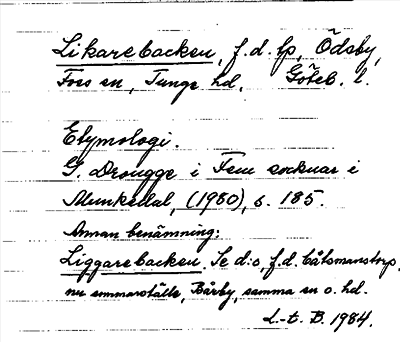 Likarebacken, f.d. lp, Ödsby,
Foss sn, Tunge hd, Göteb. l.
Etymologi.
G. Drougge i Fem socknar i
Munkedal, (1980), s. 185.
Annan benämning:
Liggarebacken. Se d:o, f.d. båtsmanstorp,
nu sommarställe, Bärby, samma sn o. hd.
L-t. B. 1984.